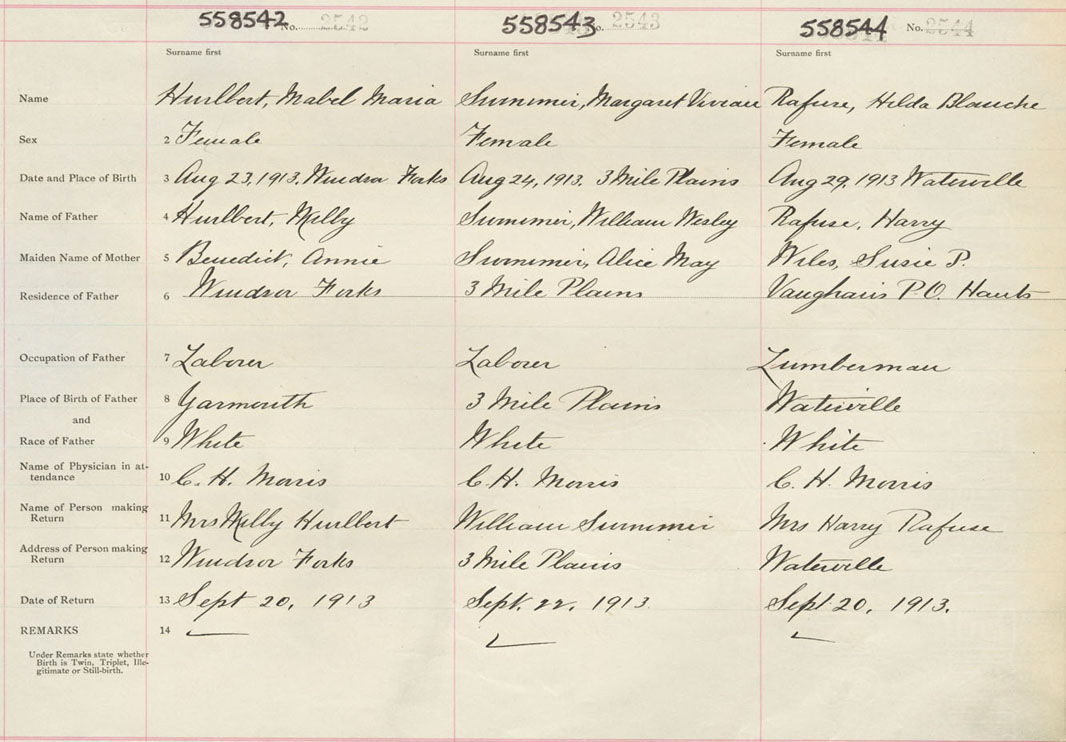 558542 No. 2542 558543 No. 2543 558544 No. 2544
Surname first Surname first Surname first
Name Hurlbert, Mabel Maria Surnimir, Margaret Vivian Rafuse, Hilda Blanche
Sex 2 Female Female Female
Date and Place of Birth 3 Aug 23, 1913. Windsor Forks Aug 24, 1913. 3 Mile Plains Aug 29, 1913 Waterville
Name of Father 4 Hurlbert, Milby William Wesley Rafuse, Harry
Maiden Name of Mother 5 Benedict, Annie Alice May Wiles, Susie P.
Residence of Father 6 Windsor Forks 3 Mile Plains Vaughans P.O. Hants
Occupation of Father 7 Laborer Laborer Lumberman
Place of Birth of Father 8 Yarmouth 3 Mile Plains Waterville
and
Race of Father 9 White White White
Name of Physician in at-
tendance 10 C. H. Morris C. H. Morris C. H. Morris
Name of Person making
Return 11 Mrs Milby Hurlbert William Mrs Harry Rafuse
Address of Person making
Return 12 Windsor Forks 3 Mile Plains Waterville
Date of Return 13 Sept 20, 1913 Sept. 22, 1913. Sept 20, 1913.
REMARKS 14
Under Remarks state whether
Birth is Twin, Triplet, Ille-
gitimate or Still-birth.